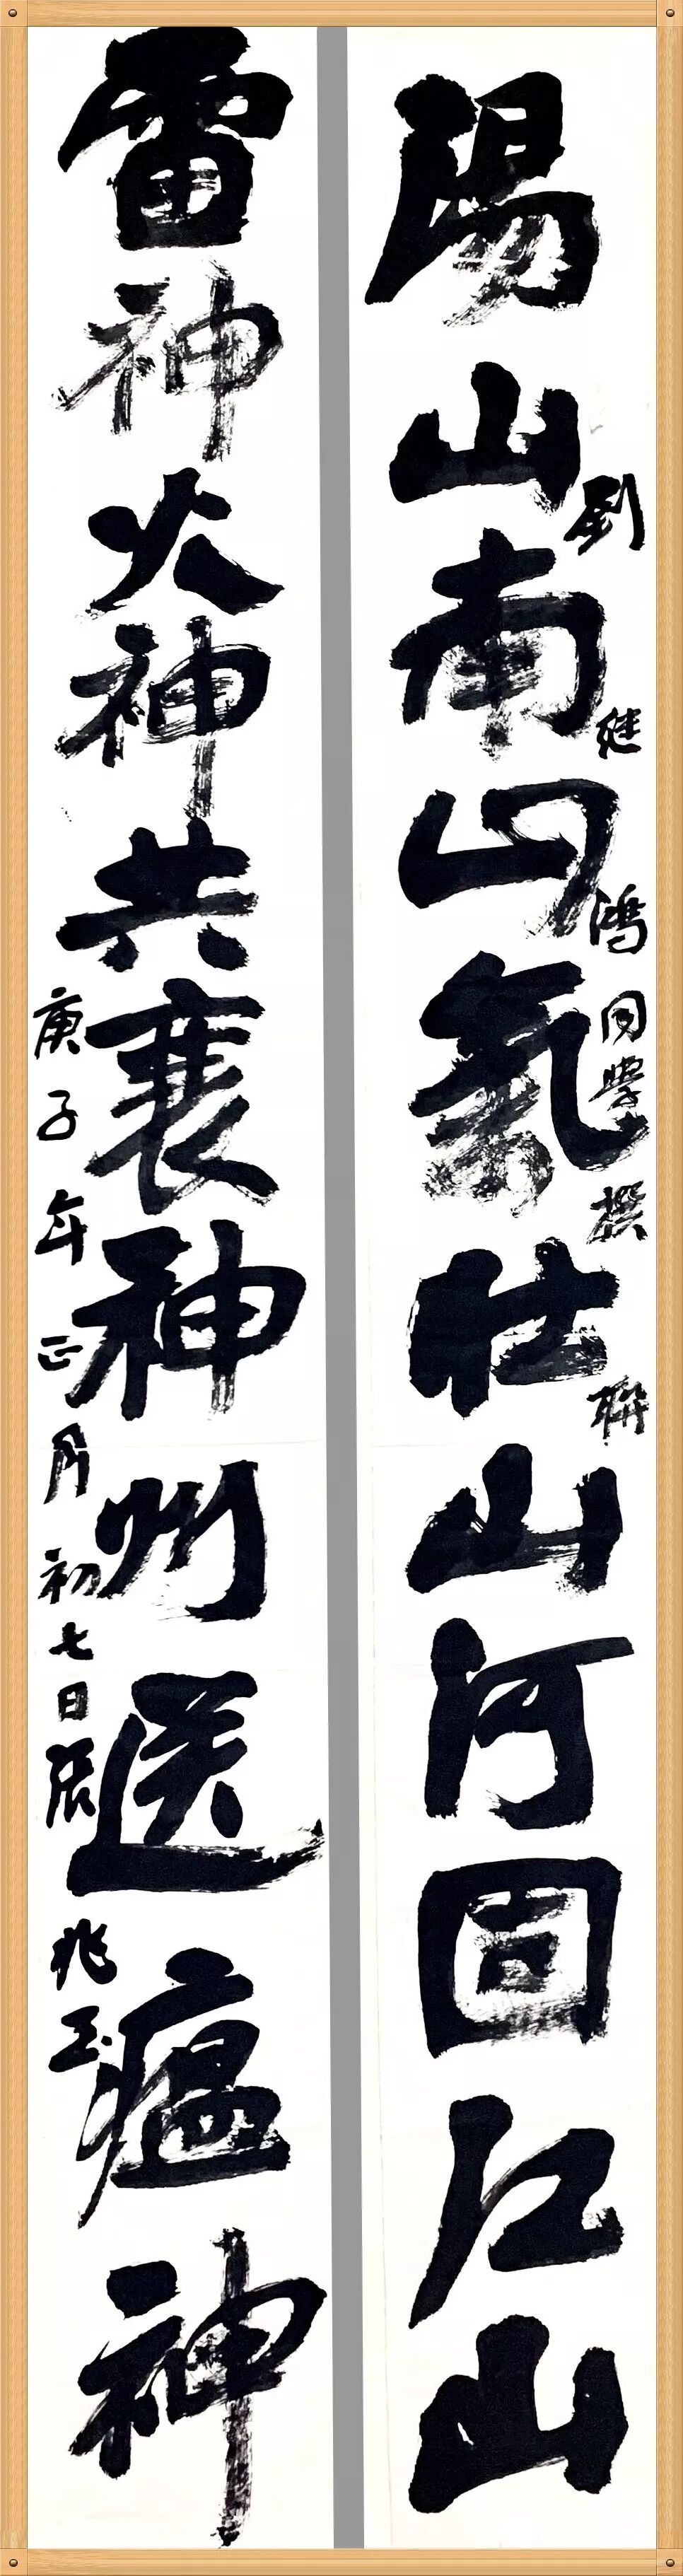 湯山南山氣壯山河固江山
劉继鴻同學撰聯
雷神火神共襄神州送瘟神
庚子年正月初七日張兆玉